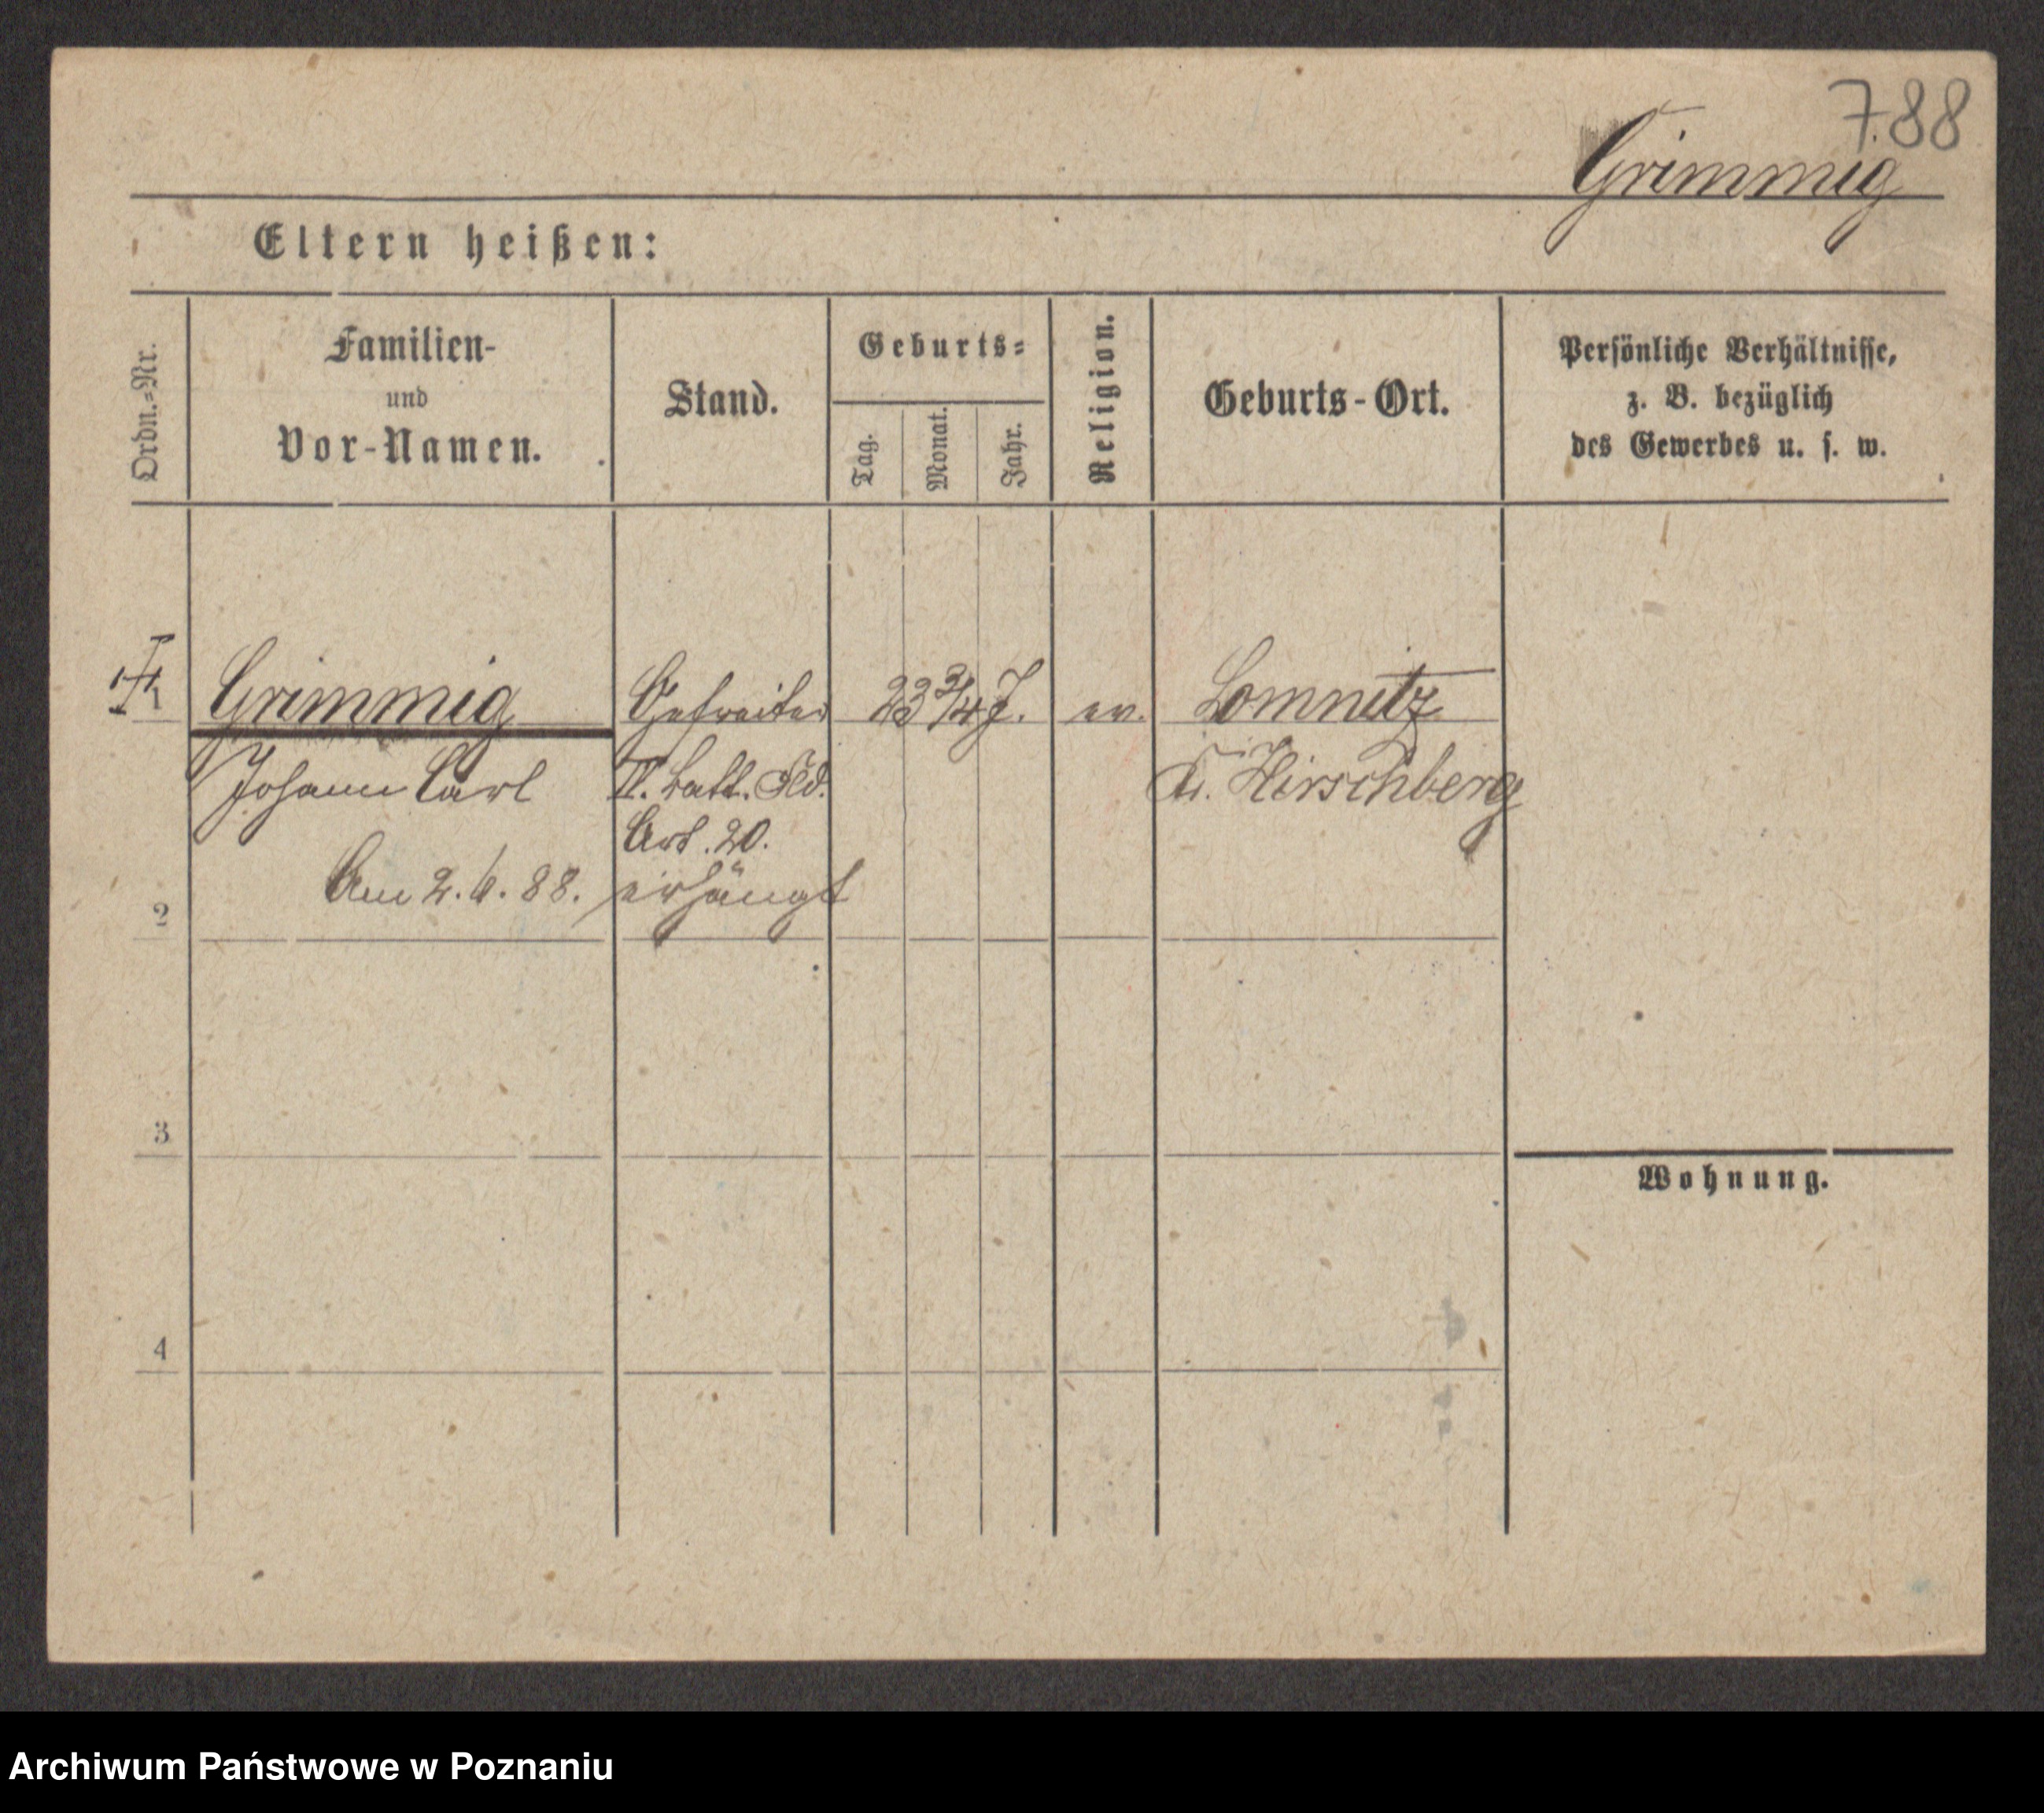 788
Grimmig
Eltern heißen:
Ordn.-Nr.
Familien-
und
Vor-Namen.
Stand.
Geburts-
Tag.
Monat.
Jahr.
Religion.
Geburts-Ort.
Persönliche Verhältnisse,
z. B. bezüglich
des Gewerbes u. s. w.
Grimmig Gefreiter 23 3/4 J. ev. Lomnitz
Johann Carl II. Batt. Fld. Kr. Hirschberg
Art. 20.
Am 2.6.88. erhängt
2
3
Wohnung.
4
Archiwum Państwowe w Poznaniu